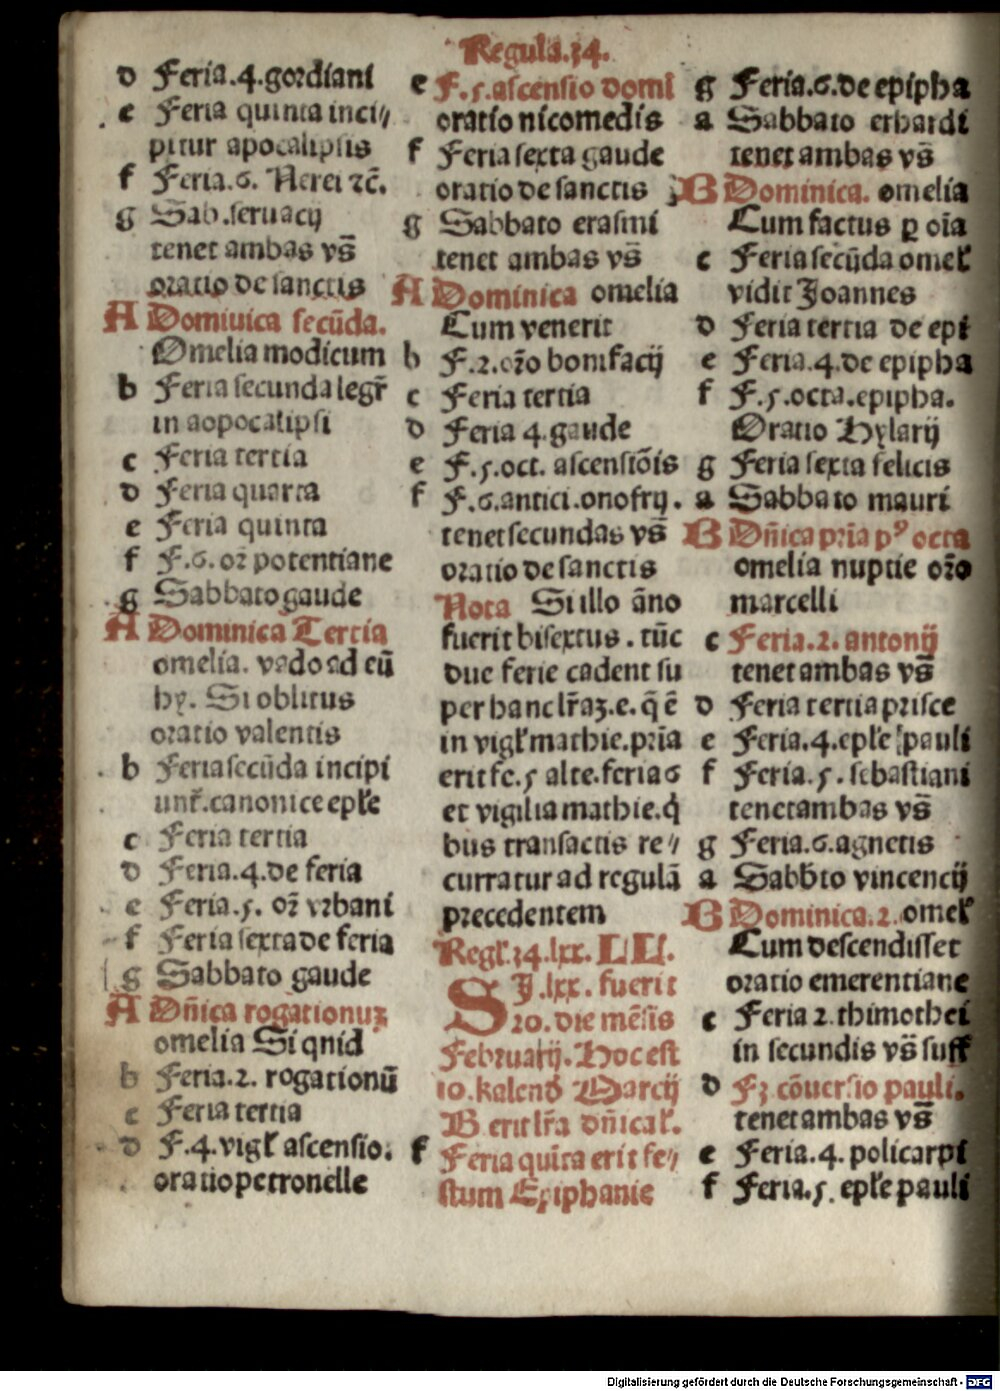 Regula.34.
d Feria.4.gordiani
e Feria quinta inci⸗
pitur apocalipsis
f Feria.6. Nerei ⁊c̄.
g Sab.seruacij
tenet ambas vs̄
oratio de sanctis
A Domiuica secūda.
Omelia modicum
b Feria secunda legr̄
in aopocalipsi
c Feria tertia
d Feria quarta
e Feria quinta
f F.6. or̄ potentiane
g Sabbato gaude
A Dominica Tertia
omelia. vado ad eū
hy. Si oblitus
oratio valentis
b Feria secūda incipi
unt̄.canonice ep̄le
c Feria tertia
d Feria.4.de feria
e Feria.5. or̄ vrbani
f Feria sexta de feria
g Sabbato gaude
A Dn̄ica rogationuꝫ
omelia Si qnid
b Feria.2. rogationū
c Feria tertia
d F.4.vigl̄ ascensio.
oratio petronelle
e F.5.ascensio domī
oratio nicomedis
f Feria sexta gaude
oratio de sanctis
g Sabbato erasmi
tenet ambas vs̄
A Dominica omelia
Cum venerit
b F.2.or̄o bonifacij
c Feria tertia
d Feria 4.gaude
e F.5.oct. ascensiōis
f F.6.antici.onofrij.
tenet secundas vs̄
oratio de sanctis
Nota Si illo āno
fuerit bisextus . tūc
due ferie cadent su
per hanc lr̄aꝫ.e. q̄ ē
in vigl̄ mathie.pr̄ia
erit fe.5 alte.feria 6
et vigilia mathie.q̇
bus transactis re⸗
curratur ad regulā
precedentem
Regl̄.34.lxx. LL.
SJ.lxx. fuerit
20. die mēsis
Februarij. Hoc est
10.kalend̄ Marcij
B erit lr̄a dn̄ical̄.
f Feria quīta erit fe⸗
stum Epiphanie
g Feria.6.de epipha
a Sabbato erhardi
tenet ambas vs̄
B Dominica. omelia
Cum factus ꝑ oīa
c Feria secūda omel̄
vidit Joannes
d Feria tertia de epi
e Feria.4.de epipha
f F.5.octa.epipha.
Oratio Hylarij
g Feria sexta felicis
a Sabbato mauri
B Dn̄ica pr̄ia pꝰ octa
omelia nuptie or̄o
marcelli
c Feria.2. antonij
tenet ambas vs̄
d Feria tertia prisce
e Feria.4.ep̄le pauli
f Feria.5. sebastiani
tenet ambas vs̄
g Feria.6.agnetis
a Sabb̄to vincencij
B Dominica.2.omel̄
Cum descendisset
oratio emerentiane
c Feria 2.thimothei
in secundis vs̄ suff
d F3 cōuersio pauli.
tenet ambas vs̄
e Feria.4. policarpi
f Feria.5. ep̄le pauli
Digitalisierung gefördert durch die Deutsche Forschungsgemeinschaft - DFG